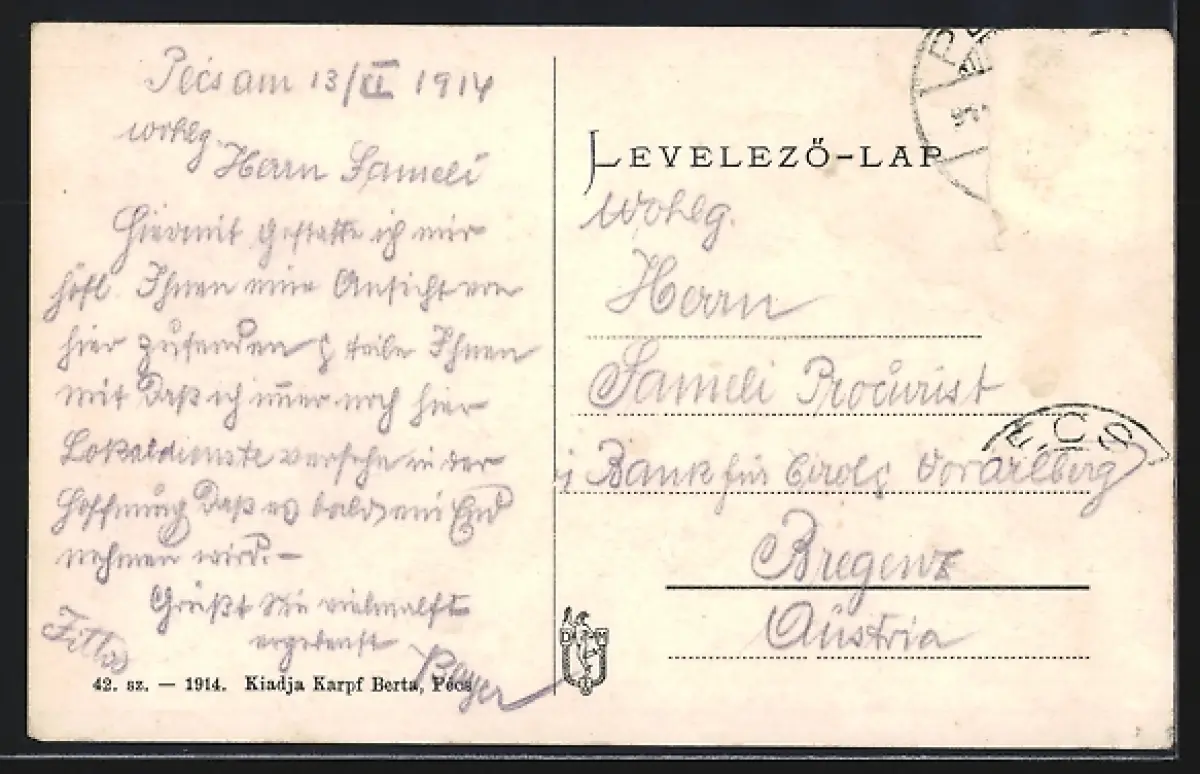 Pécs am 13/XI 1914
Wohlg.
Herrn Sameli
Hiermit gestatte ich mir
höfl. Ihnen eine Ansicht von
hier zusenden & teile Ihnen
mit Daß ich im̅er noch hier
Lokaldienste versehe in der
Hoffnung Daß es bald ein End
nehmen wird. –
Grüßt Sie vielmalst
ergebenst
Bayer
42. sz. — 1914. Kiadja Karpf Berta, Pécs
LEVELEZŐ-LAP
Wohlg.
Herrn
Sameli Procurist
Bank für Tirol & Vorarlberg
Bregenz
Austria
D M
PÉCS